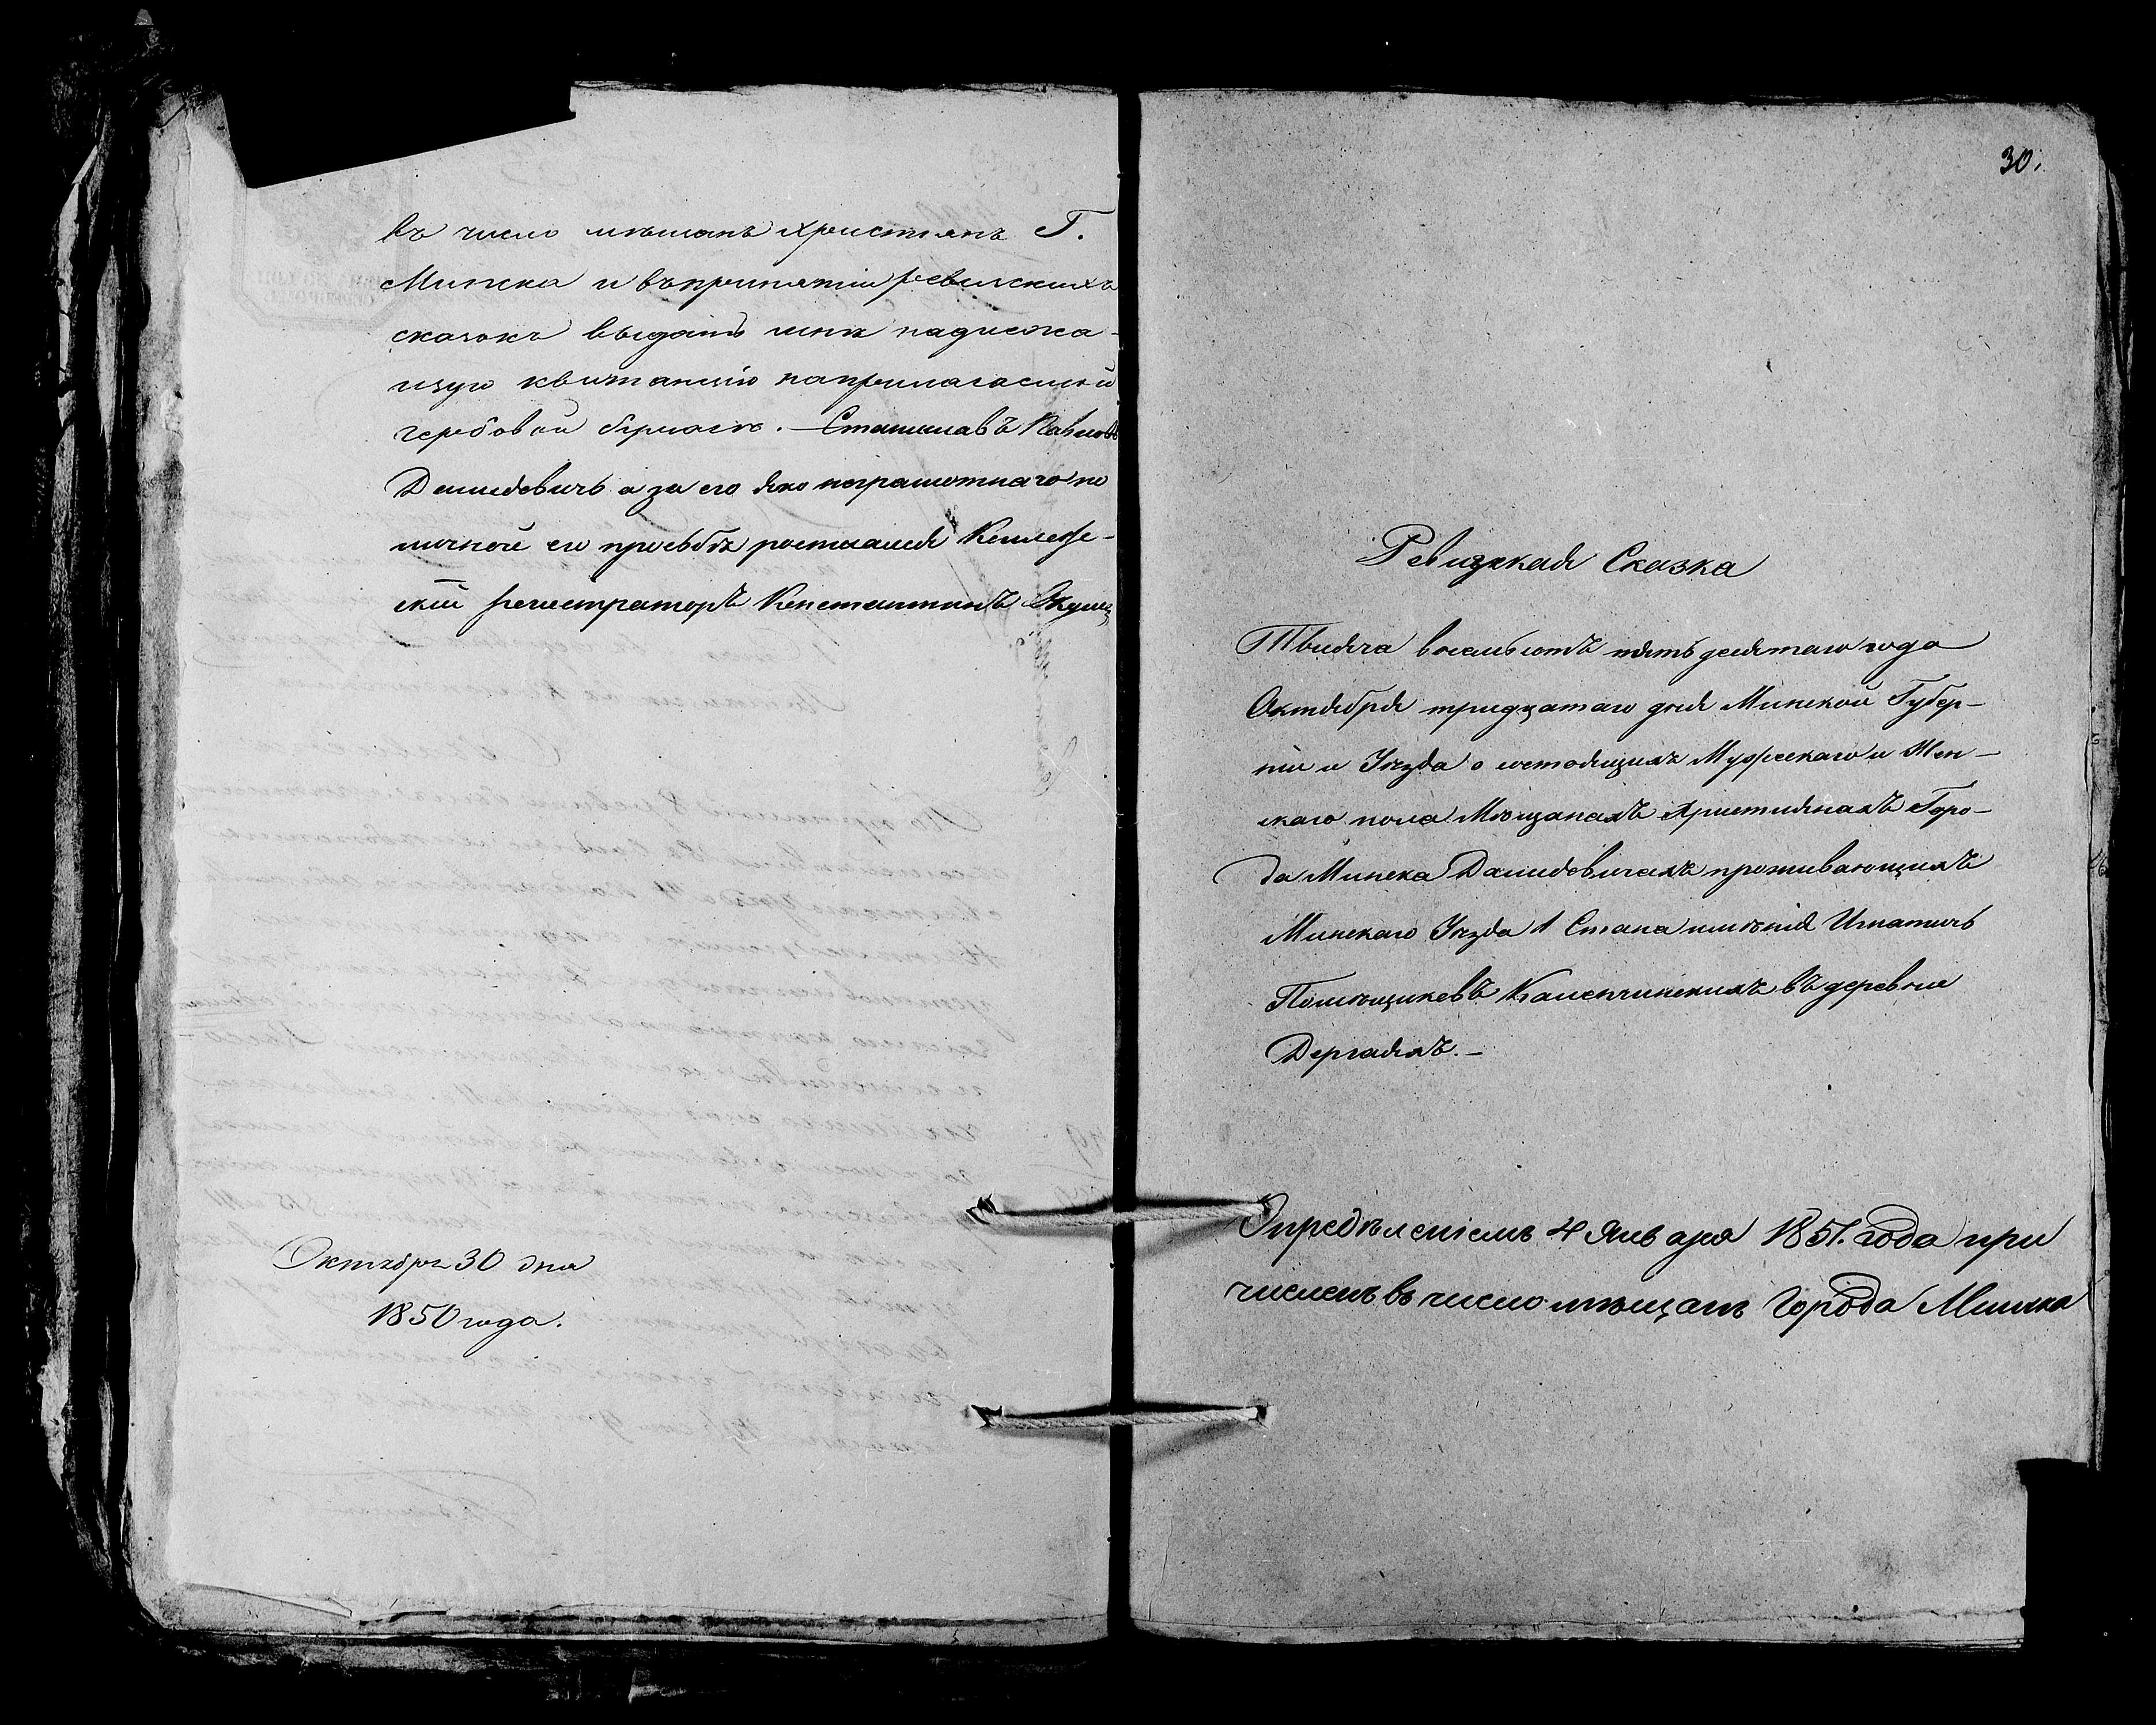 въ число мѣщанъ христіянъ Г.
Минска и въ принятіи ревизскихъ
сказокъ выдать мнѣ надлежа-
щую квитанцію на прилагаемой
гербовой бумагѣ. – Станиславъ Павловъ
Демидовичъ а за его яко неграмотнаго по
личной его просьбѣ росписался Коллеж-
скій регистраторъ Константинъ
Октября 30 дня
1850 года.
30.
Ревизская Сказка
Тысяча восемьсотъ пятьдесятаго года
Октября тридцатаго дня Минской Губер-
ніи и Уѣзда о состоящихъ Мужескаго и Жен-
скаго пола Мѣщанахъ Християнахъ Горо-
да Минска Демидовичахъ проживающихъ
Минскаго Уѣзда 1 Стана имѣнія Игнатичь
Помѣщиковъ въ деревне
Дергаяхъ. –
Опредѣленіемъ 4 Января 1851. года при
численъ въ число мѣщанъ Города Минска